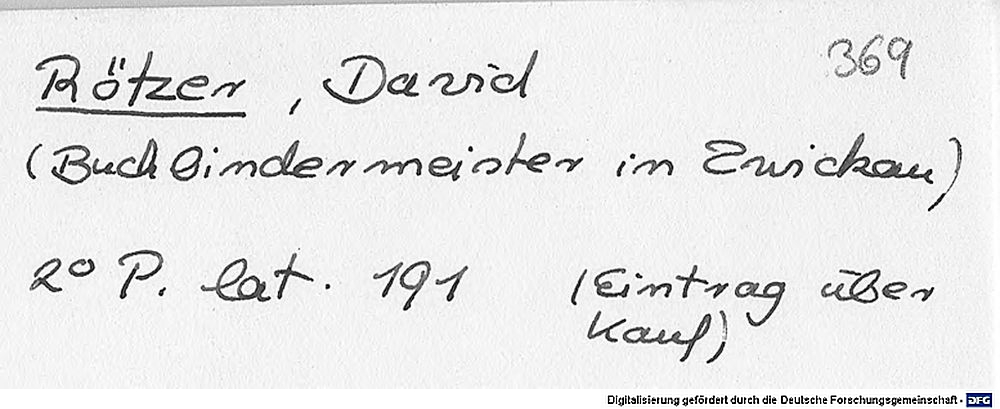 369
Rötzer, David
(Buchbindermeister in Zwickau)
2° P. lat. 191 (Eintrag über
Kauf)
Digitalisierung gefördert durch die Deutsche Forschungsgemeinschaft - DFG